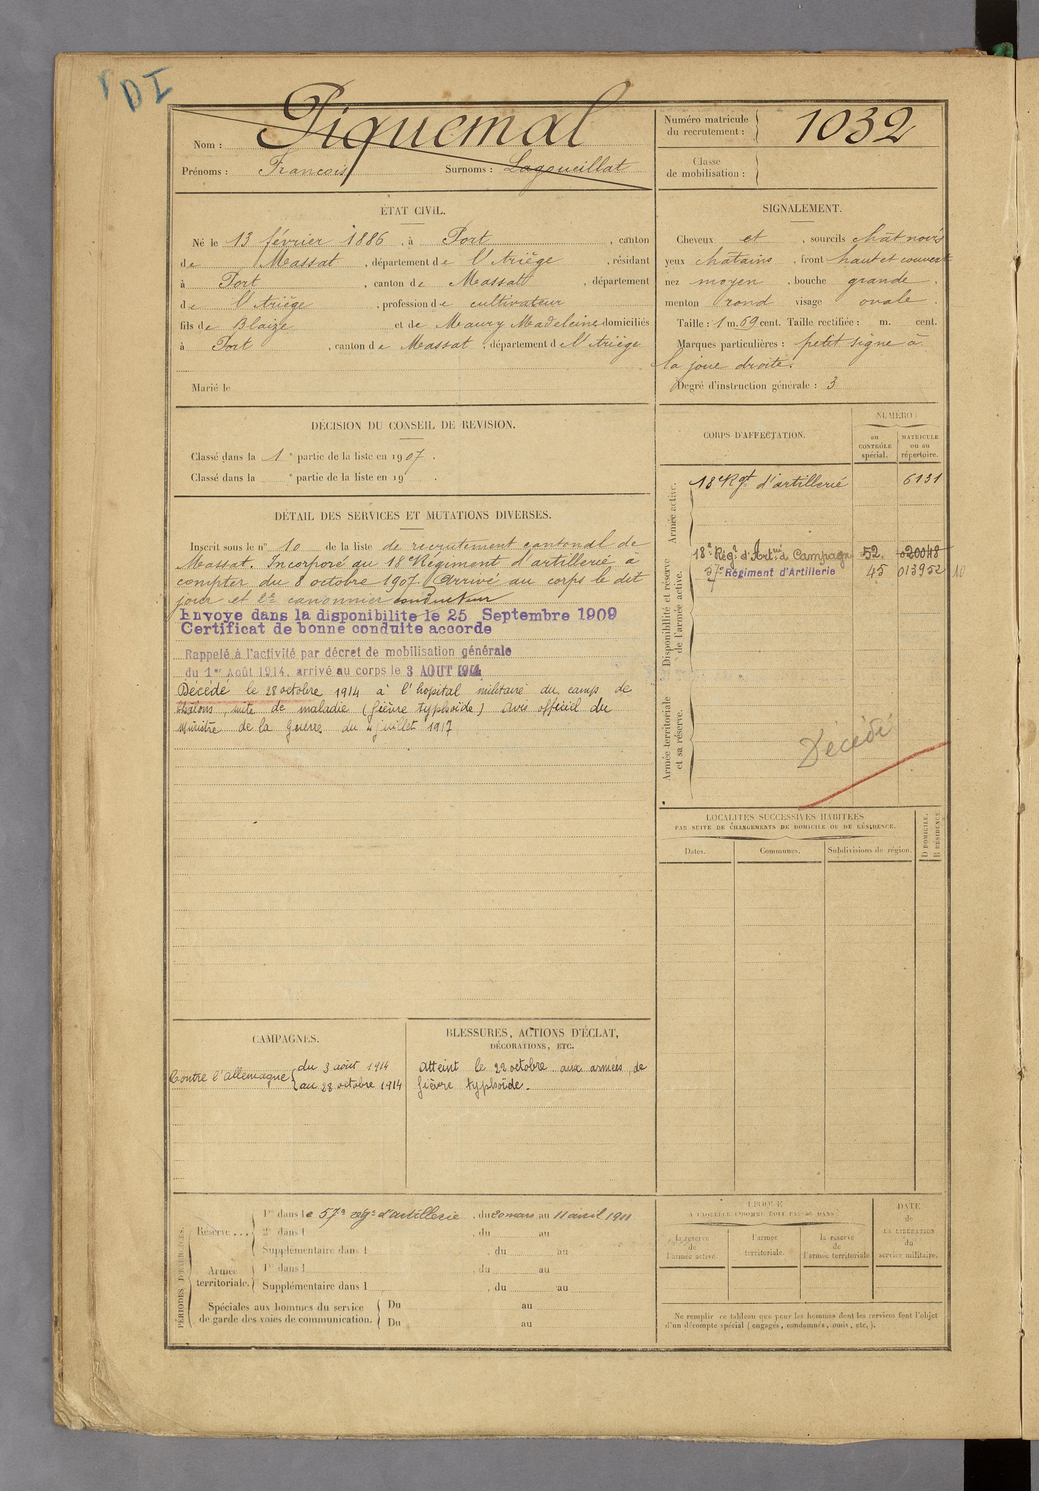 DI
Nom : Piquemal
Prénoms : François Surnoms : Lagoueillat
Numéro matricule du recrutement : 1032
Classe de mobilisation :
ÉTAT CIVIL.
Né le 13 février 1886, à Port, canton
de Massat, département de l'Ariège, résidant
à Port, canton de Massat, département
de l'Ariège, profession de cultivateur
fils de Blaize et de Maury Madeleine domiciliés
à Port, canton de Massat, département de l'Ariège
Marié le
SIGNALEMENT.
Cheveux et , sourcils chât noirs
yeux châtains , front haut et couvert
nez moyen , bouche grande .
menton rond visage ovale .
Taille : 1 m. 69 cent. Taille rectifiée : m. cent.
Marques particulières : petit signe à
la joue droite.
Degré d'instruction générale : 3
DÉCISION DU CONSEIL DE REVISION.
Classé dans la 1e partie de la liste en 1907.
Classé dans la e partie de la liste en 19 .
DÉTAIL DES SERVICES ET MUTATIONS DIVERSES.
Inscrit sous le n° 10 de la liste de recrutement cantonal de
Massat. Incorporé au 18e Régiment d'artillerie à
compter du 8 octobre 1907 Arrivé au corps le dit
jour et 2e canonnier conducteur
Envoye dans la disponibilite le 25 Septembre 1909
Certificat de bonne conduite accorde
Rappelé à l'activité par décret de mobilisation générale
du 1er Août 1914, arrivé au corps le 3 AOUT 1914
Décédé le 28 octobre 1914 à l'hopital militaire du camps de
Châlons, suite de maladie (fièvre typhoïde) Avis officiel du
Ministre de la Guerre du 4 juillet 1917
CORPS D'AFFECTATION.
NUMÉRO :
au CONTRÔLE spécial.
MATRICULE ou au répertoire.
Armée active.
18e Rgt d'artillerie 6131
Disponibilité et réserve de l'armée active.
18e Régt d'Artrie de Campagne 52 020048
57e Régiment d'Artillerie 45 013952 10
Armée territoriale et sa réserve.
Décédé
LOCALITÉS SUCCESSIVES HABITÉES
PAR SUITE DE CHANGEMENTS DE DOMICILE OU DE RÉSIDENCE.
Dates. Communes. Subdivisions de région. D DOMICILE. R RÉSIDENCE
CAMPAGNES.
Contre l'Allemagne { du 3 août 1914
au 28 octobre 1914
BLESSURES, ACTIONS D'ÉCLAT,
DÉCORATIONS, ETC.
Atteint le 22 octobre aux armées de
fièvre typhoïde.
PÉRIODES D'EXERCICES.
Réserve ... 1re dans le 57e régt d'artillerie , du 20 mars au 11 avril 1911
2e dans l , du au
Supplémentaire dans l , du au
Armée territoriale. 1re dans l , du au
Supplémentaire dans l , du au
Spéciales aux hommes du service de garde des voies de communication. Du au
Du au
ÉPOQUE
À LAQUELLE L'HOMME DOIT PASSER DANS :
la réserve de l'armée active
l'armée territoriale.
la réserve de l'armée territoriale
DATE de LA LIBÉRATION du service militaire.
Ne remplir ce tableau que pour les hommes dont les services font l'objet
d'un décompte spécial (engagés, condamnés, omis, etc.).